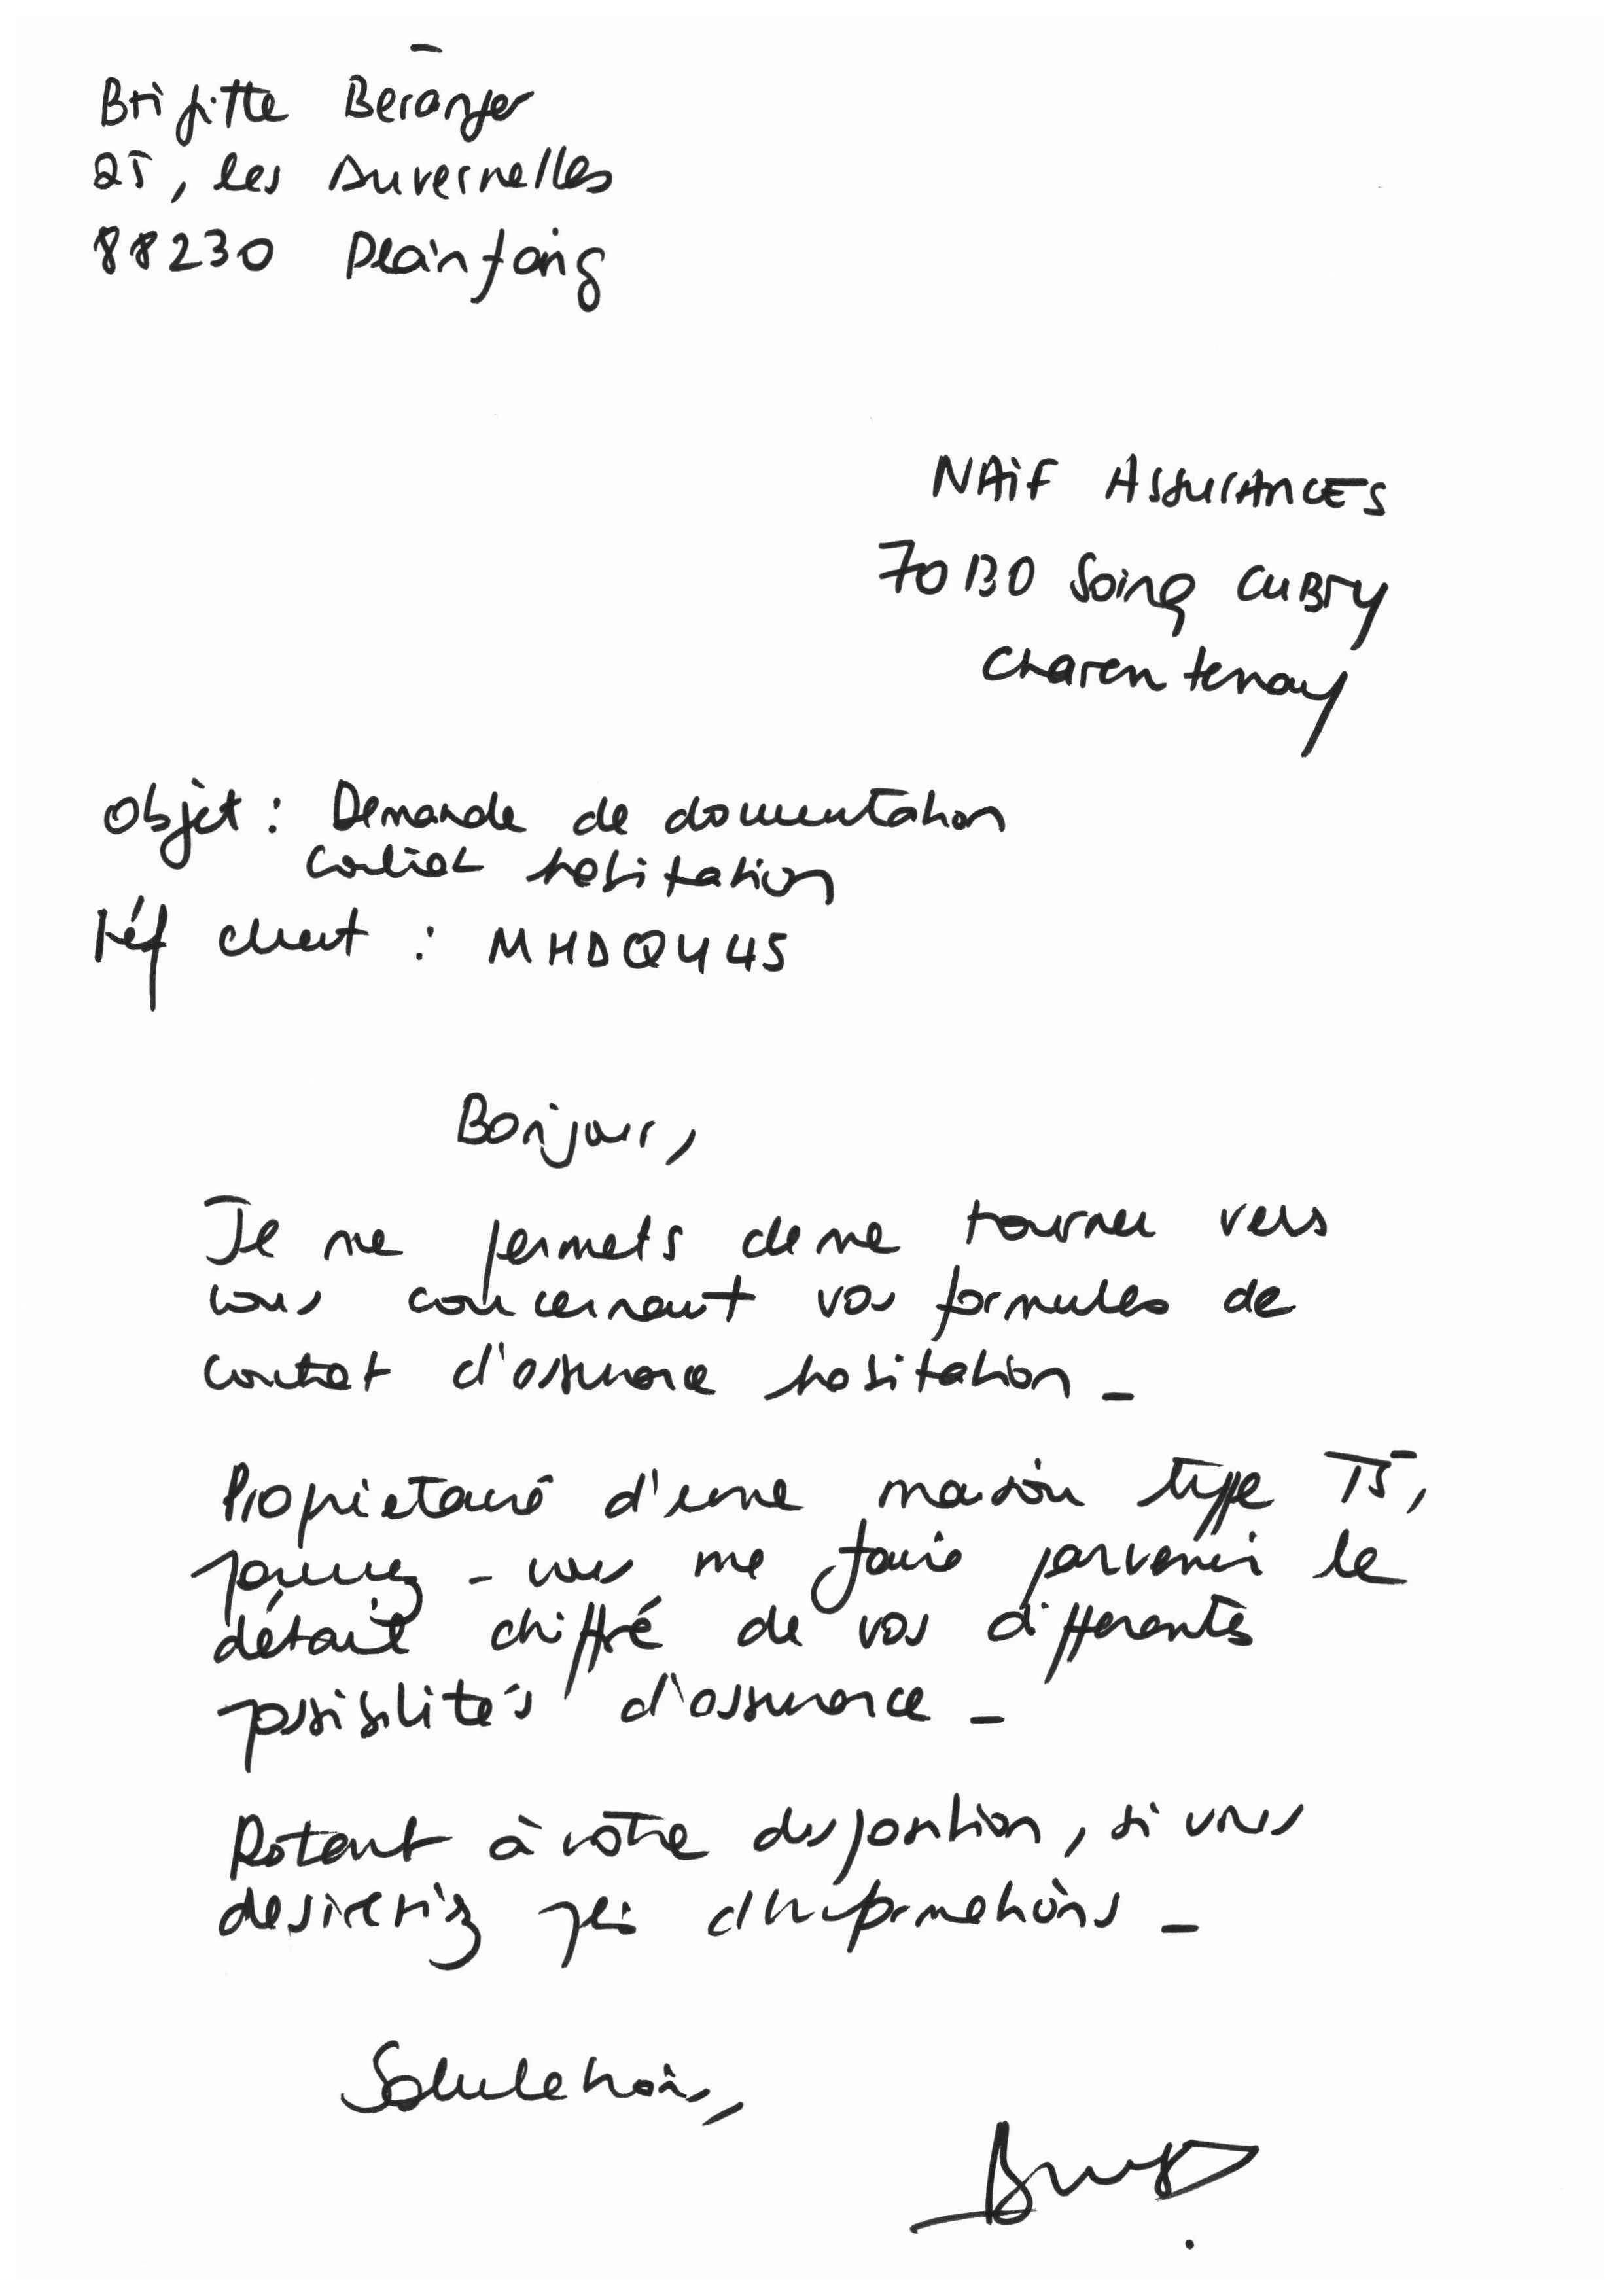 Brigitte Beranger
25, les Auvernelles
88230 Plainfaing
NAIF ASSURANCES
70130 Soing CUBRY
Charentenay
Objet : Demande de documentation
contrat habitation
Réf client : MHDQ445
Bonjour,
Je me permets de me tourner vers
vous concernant vos formules de
contrat d'assurance habitation -
Propriétaire d'une maison type T5,
pouvez-vous me faire parvenir le
détail chiffré de vos différentes
possibilités d'assurance -
Restant à votre disposition, si vous
desireriez plus d'informations -
Salutations,